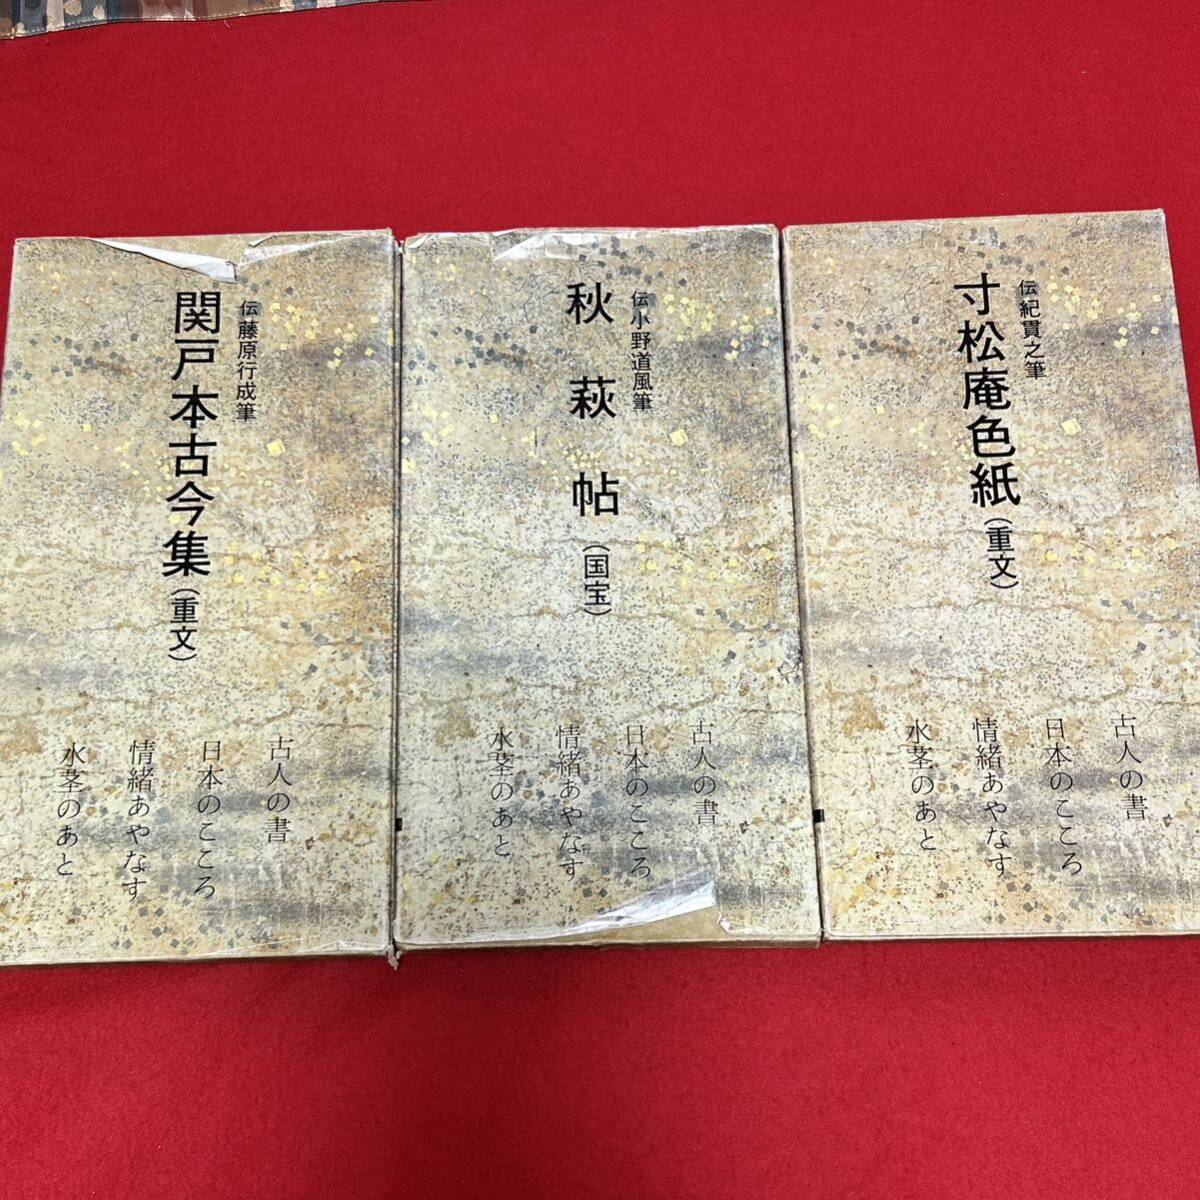 伝紀貫之筆
寸松庵色紙(重文)
古人の書
日本のこころ
情緒あやなす
水茎のあと
伝小野道風筆
秋萩帖(国宝)
古人の書
日本のこころ
情緒あやなす
水茎のあと
伝藤原行成筆
関戸本古今集(重文)
古人の書
日本のこころ
情緒あやなす
水茎のあと